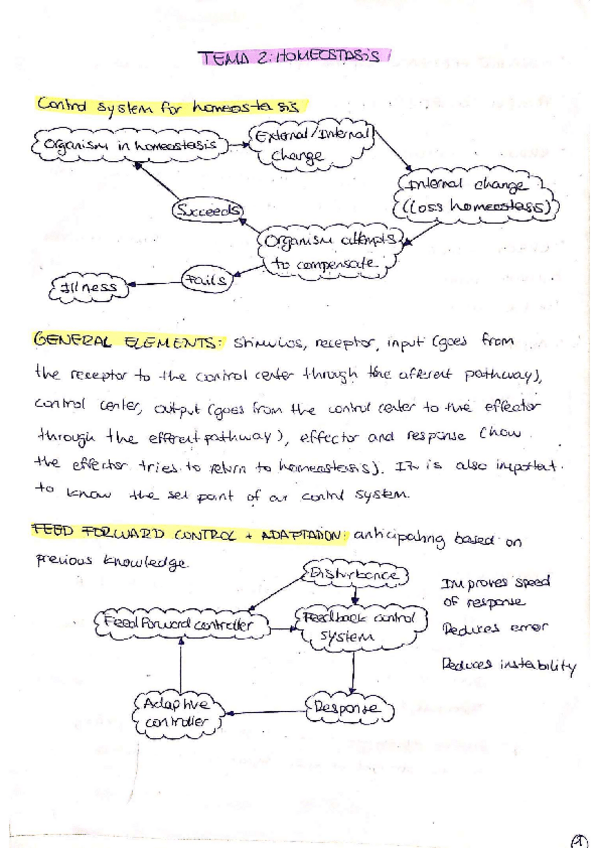 TEMA 2: HOMEOSTASIS
Control system for homeostasis
Organism in homeostasis
External/Internal
change
Internal change
(Loss homeostasis)
Succeeds
Organism attempts
to compensate
Fails
Illness
GENERAL ELEMENTS: stimulus, receptor, input (goes from
the receptor to the control center through the afferent pathway),
control center, output (goes from the control center to the effector
through the efferent pathway), effector and response (how
the effector tries to return to homeostasis). It is also important
to know the set point of our control system.
FEED FORWARD CONTROL + ADAPTATION: anticipating based on
previous knowledge.
Disturbance
Improves speed
of response
Feed Forward controller
Feedback control
system
Reduces error
Reduces instability
Adaptive
controller
Response
1